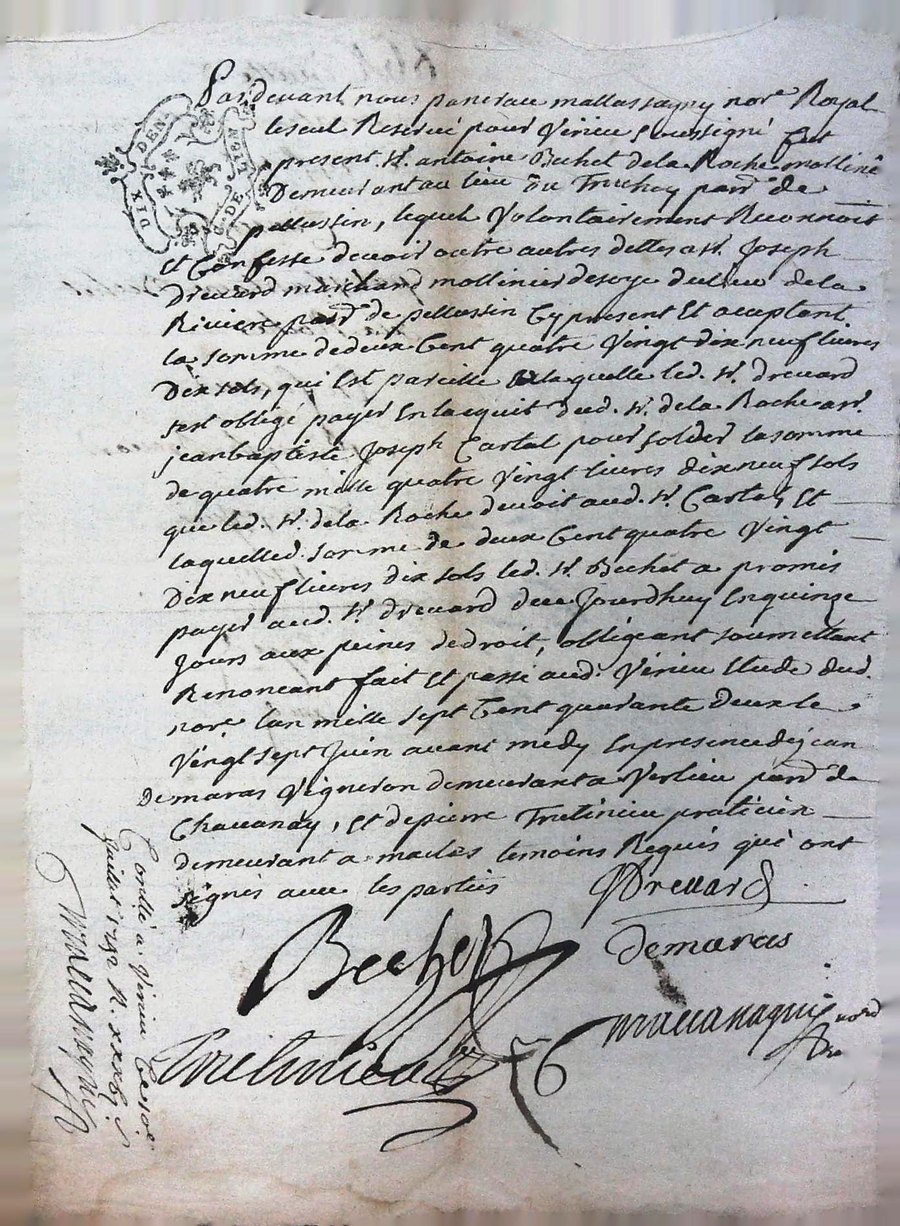 Pardevant nous pancrau mallassagny nore Royal
le seul Reservé pour Virieu soussigné fut
present Sr. antoine Bechet de la Roche mollinié
Demeurant au lieu du Truchey parsse de
pellussin, lequel Volontairement Reconnoit
et Confesse devoir outre autres debtes a Sr. Joseph
Drevard marchand mollinier de soye du lieu de la
Riviere parsse de pellussin Cy present Et aceptant
la somme de deux Cent quatre Vingt dix neuf livres
Dix sols, qui Est pareille a laquelle led. Sr. drevard
sest obligé payer En lacquit dud. Sr. de la Roche a Sr.
jean baptiste Joseph Cartal pour solder la somme
de quatre mille quatre Vingt livres dix neuf sols
que led. Sr. de la Roche devoit aud. Sr. Cartal, Et
laquelle d. somme de deux Cent quatre Vingt
Dix neuf livres dix sols led. Sr. Bechet a promis
payer aud. Sr. drevard due Jourdhuy En quinze
Jours aux peines de droit, obligeant soumettant
Renoncant fait Et passé aud. Virieu Etude dud.
nore. lan mille sept Cent quarante Deux le
Vingt sept Juin avant midy En presence de jean
Demaras Vigneron demeurant a Verlieu parsse de
Chavanay, Et de pierre Trutinieu praticien
demeurant a maclas temoins Requis qui ont
signés avec les parties
Drevard
Bechet
Demaras
DIX DEN.
G. DE
Conllé a Virieu Ce 30e
Juillet 1742 R.